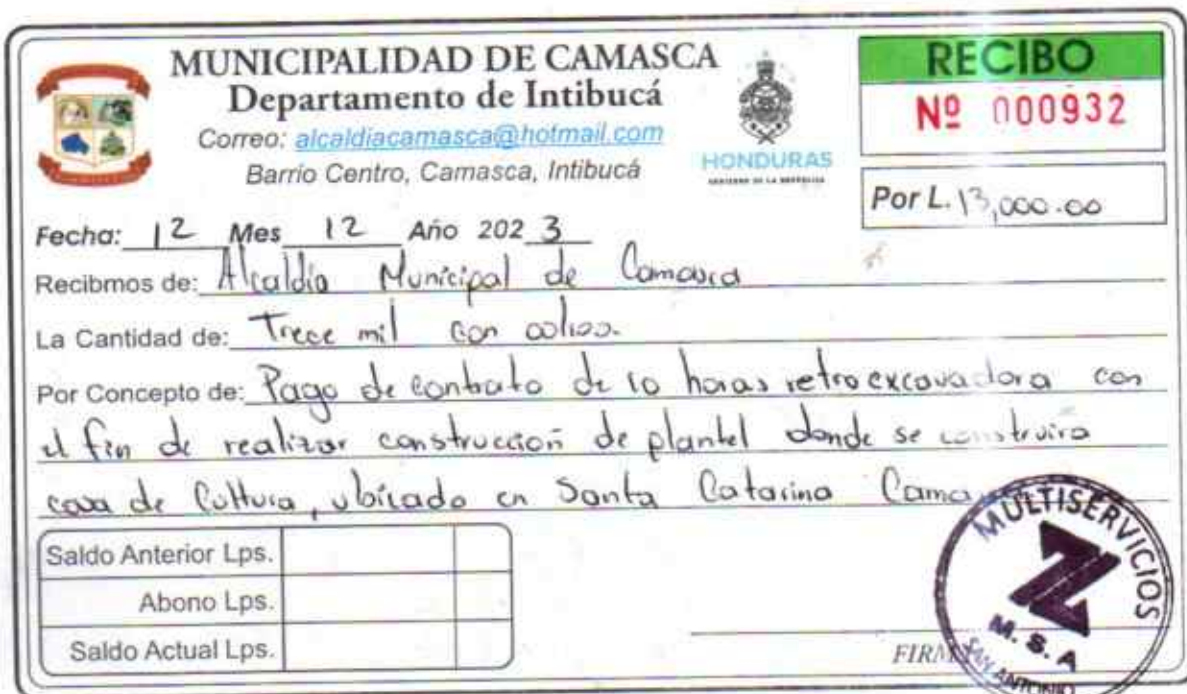 MUNICIPALIDAD DE CAMASCA
Departamento de Intibucá
Correo: alcaldiacamasca@hotmail.com
Barrio Centro, Camasca, Intibucá
HONDURAS
GOBIERNO DE LA REPÚBLICA
RECIBO
Nº 000932
Por L. 13,000.00
Fecha: 12 Mes 12 Año 2023
Recibmos de: Alcaldia Municipal de Camasca
La Cantidad de: Trece mil con 00/100.
Por Concepto de: Pago de contrato de 10 horas retroexcavadora con
el fin de realizar construcción de plantel donde se construira
casa de Cultura, ubicado en Santa Catarina Cama
Saldo Anterior Lps.
Abono Lps.
Saldo Actual Lps.
FIRMA
MULTISERVICIOS
M. S. A
SAN ANTONIO